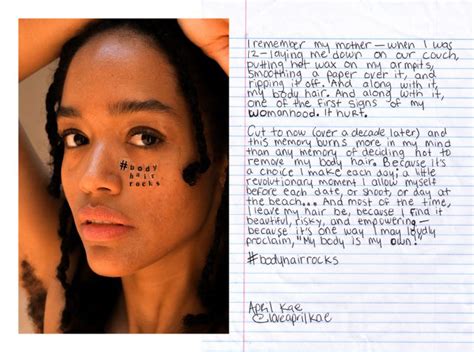 #body
hair
rocks
I remember my mother — when I was
12 — laying me down on our couch,
putting hot wax on my armpits,
smoothing a paper over it, and
ripping it off. And along with it,
my body hair. And along with it,
one of the first signs of my
womanhood. It hurt.
Cut to now (over a decade later) and
this memory burns more in my mind
than any memory of deciding not to
remove my body hair. Because it's
a choice I make each day; a little
revolutionary moment I allow myself
before each date, or shoot, or day at
the beach... And most of the time,
I leave my hair be, because I find it
beautiful, risky, and empowering —
because it's one way I may loudly
proclaim, "My body is my own!"
#bodyhairrocks
April Kae
@loveaprilkae